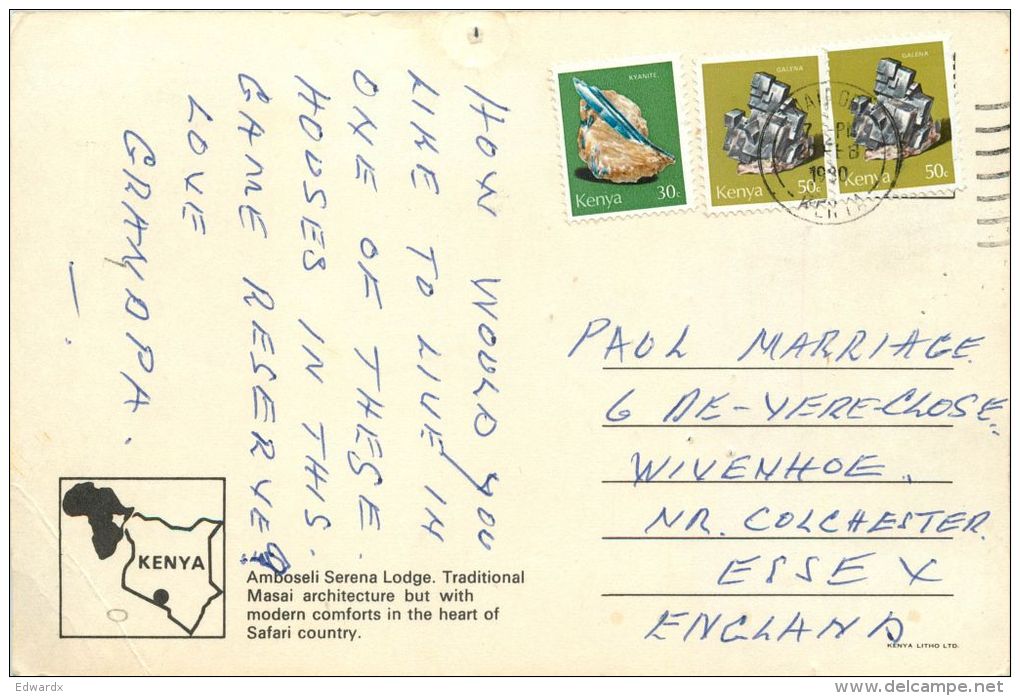 HOW WOULD YOU
LIKE TO LIVE IN
ONE OF THESE.
HOUSES IN THIS.
GAME RESERVE?
LOVE
GRANDPA.
KYANITE.
Kenya 30c
GALENA
Kenya 50c
GALENA
Kenya 50c
1980
PAUL MARRIAGE.
6 DE-VERE-CLOSE.
WIVENHOE.
NR. COLCHESTER.
ESSEX
ENGLAND
KENYA
Amboseli Serena Lodge. Traditional
Masai architecture but with
modern comforts in the heart of
Safari country.
KENYA LITHO LTD.
Edwardx
www.delcampe.net